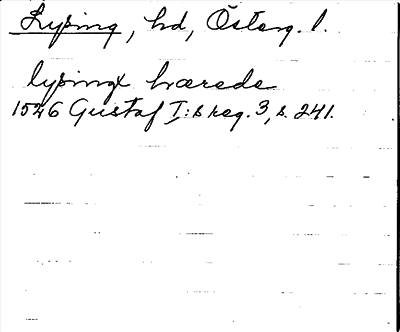 Lysing, hd, Österg. l.
lysingx hærede
1526 Gustaf I:s reg. 3, s. 241.